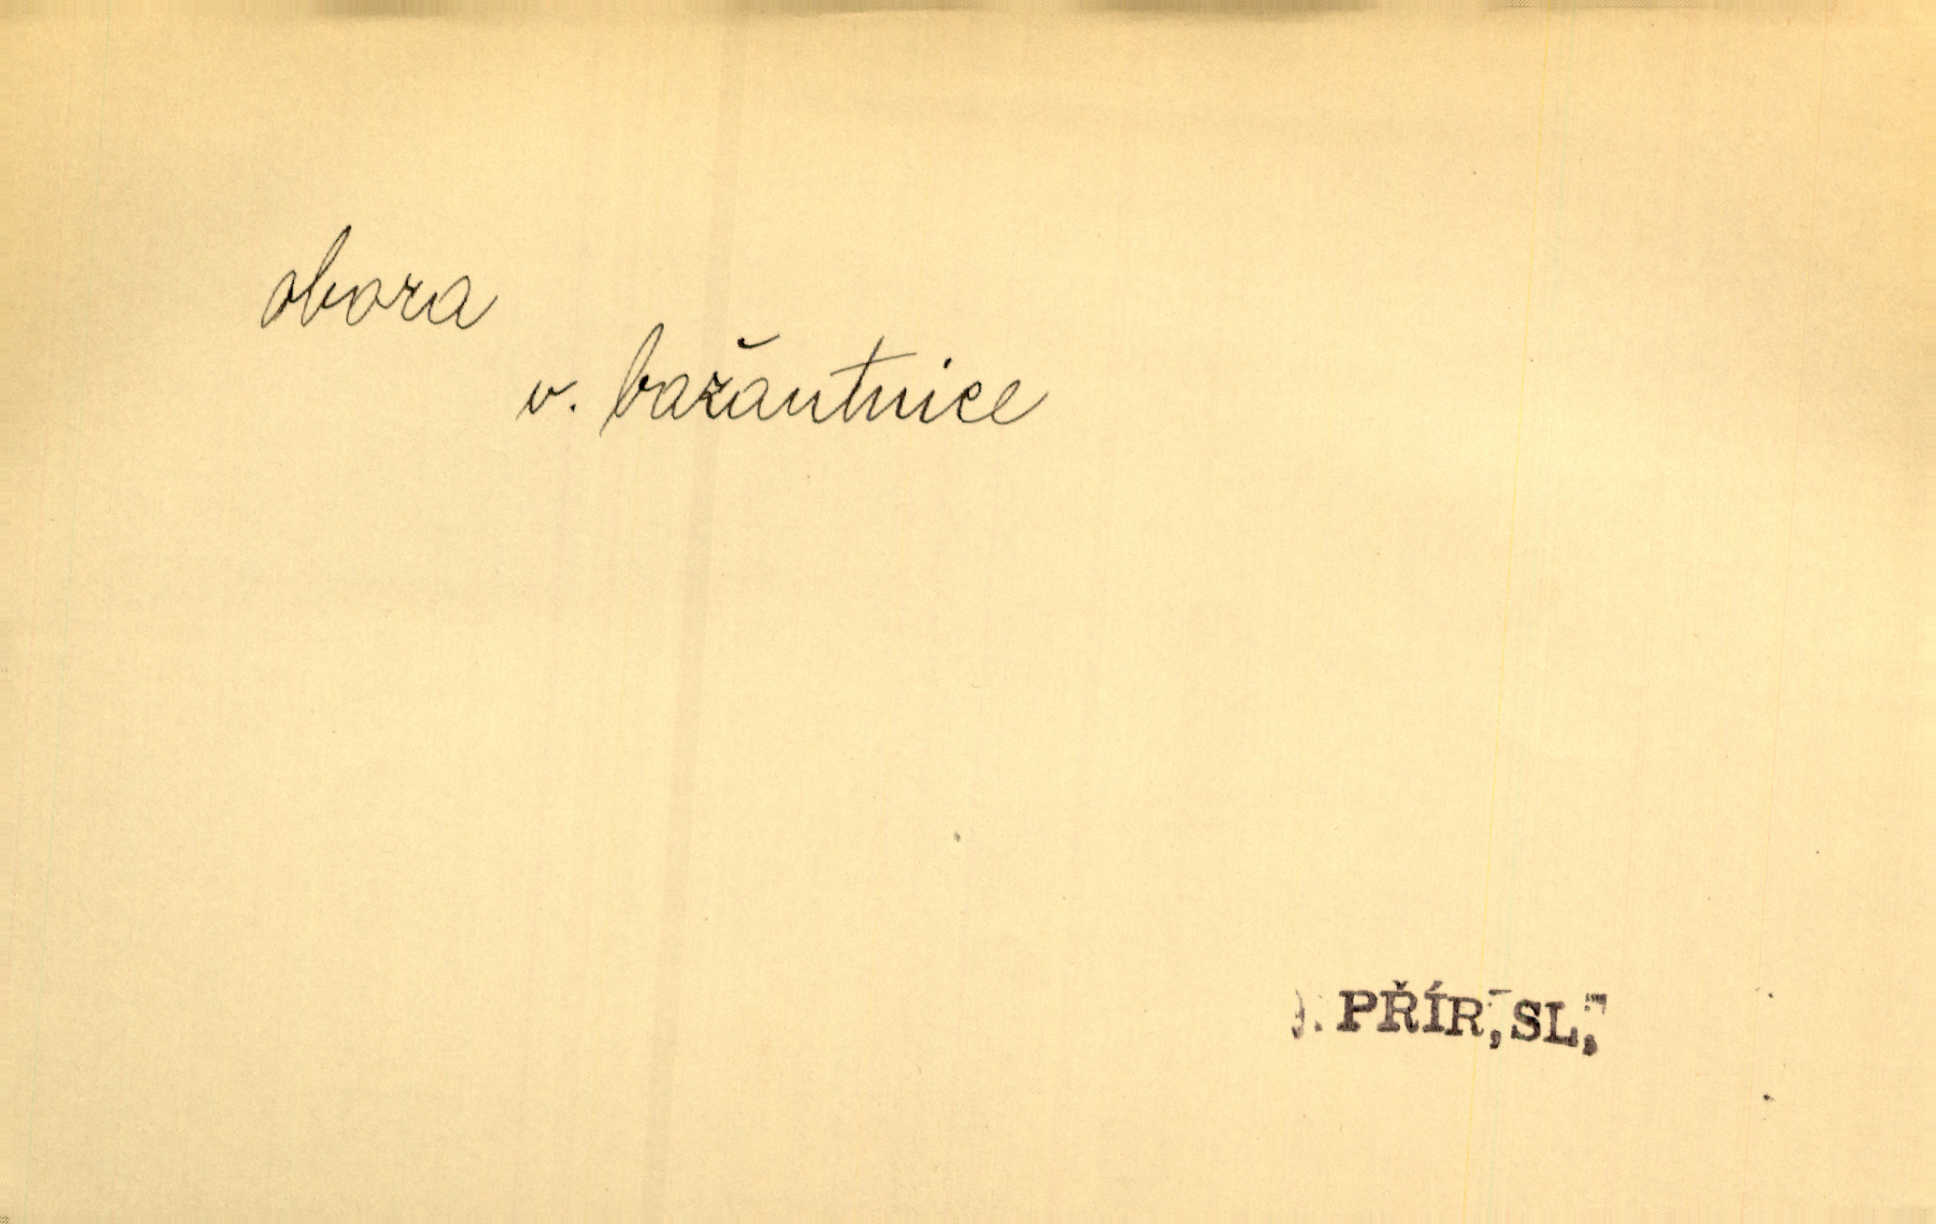 obora
v. bažantnice
PŘÍR, SL,